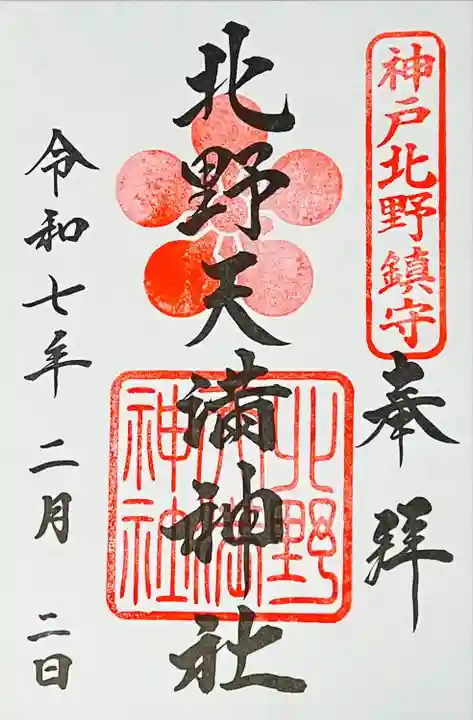 神戸北野鎮守
奉拝
北野天満神社
北野天満神社
令和七年 二月 二日